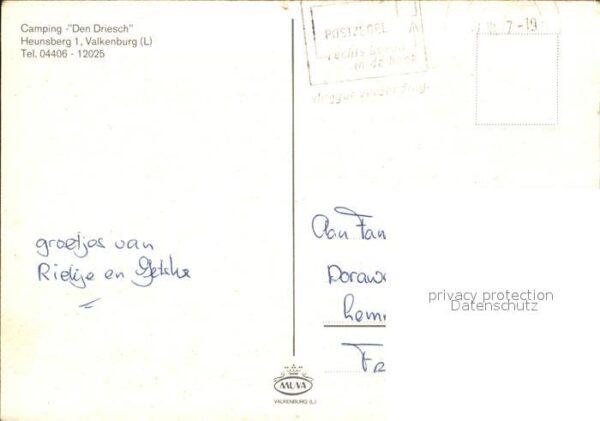 Camping -"Den Driesch"
Heunsberg 1, Valkenburg (L)
Tel. 04406 - 12025
POSTZEGEL
rechts boven
in de hoek
7-19
groetjes van
Rietje en
Aan Fam
Doraw
Lemm
Fr
privacy protection
Datenschutz
MUVA
VALKENBURG (L.)